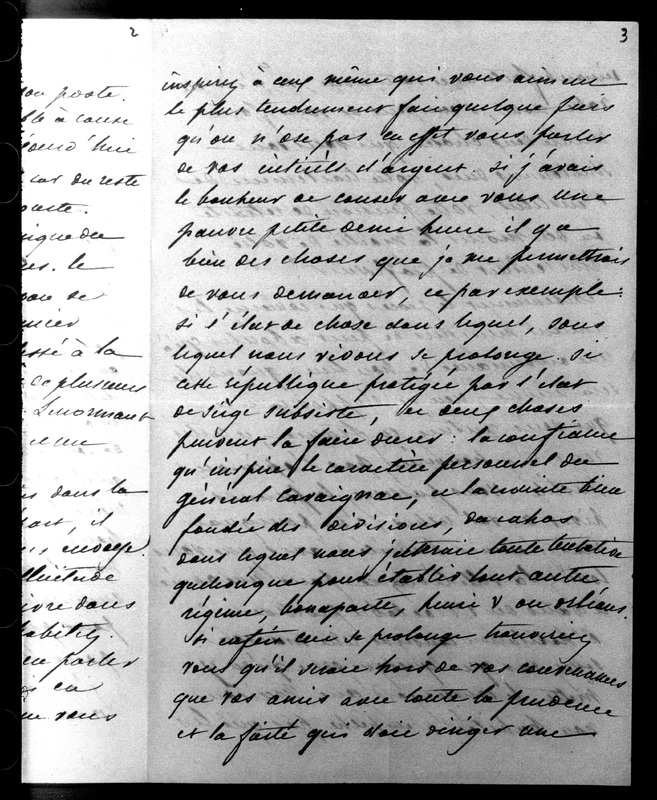 2
on poste.
à cause
du reste
le
se
à la
de plusieurs
Lenormant
dans la
il
dans
parler
en
vous
3
inspirez à ceux même qui vous aiment
le plus tendrement fait quelque fois
qu'on n'ose pas en effet vous parler
de vos intérêts d'argent si j'avais
le bonheur de causer avec vous une
pauvre petite demie heure il y a
bien des choses que je me permettrais
de vous demander, ce par exemple:
si l'état de chose dans lequel, sous
lequel nous vivons se prolonge. si
cette république protégée par l'état
de siège subsiste, et deux choses
peuvent la faire durer: la confiance
qu'inspire le caractère personnel du
général Cavaignac, et la crainte bien
fondée des divisions, du cahos
dans lequel nous jetterait toute tentative
quelconque pour établir tout autre
régime, bonaparte, henri V ou orléans.
si enfin ceci se prolonge trouveriez
vous qu'il serait hors de vos convenances
que vos amis avec toute la prudence
et la fierté qui doit diriger une